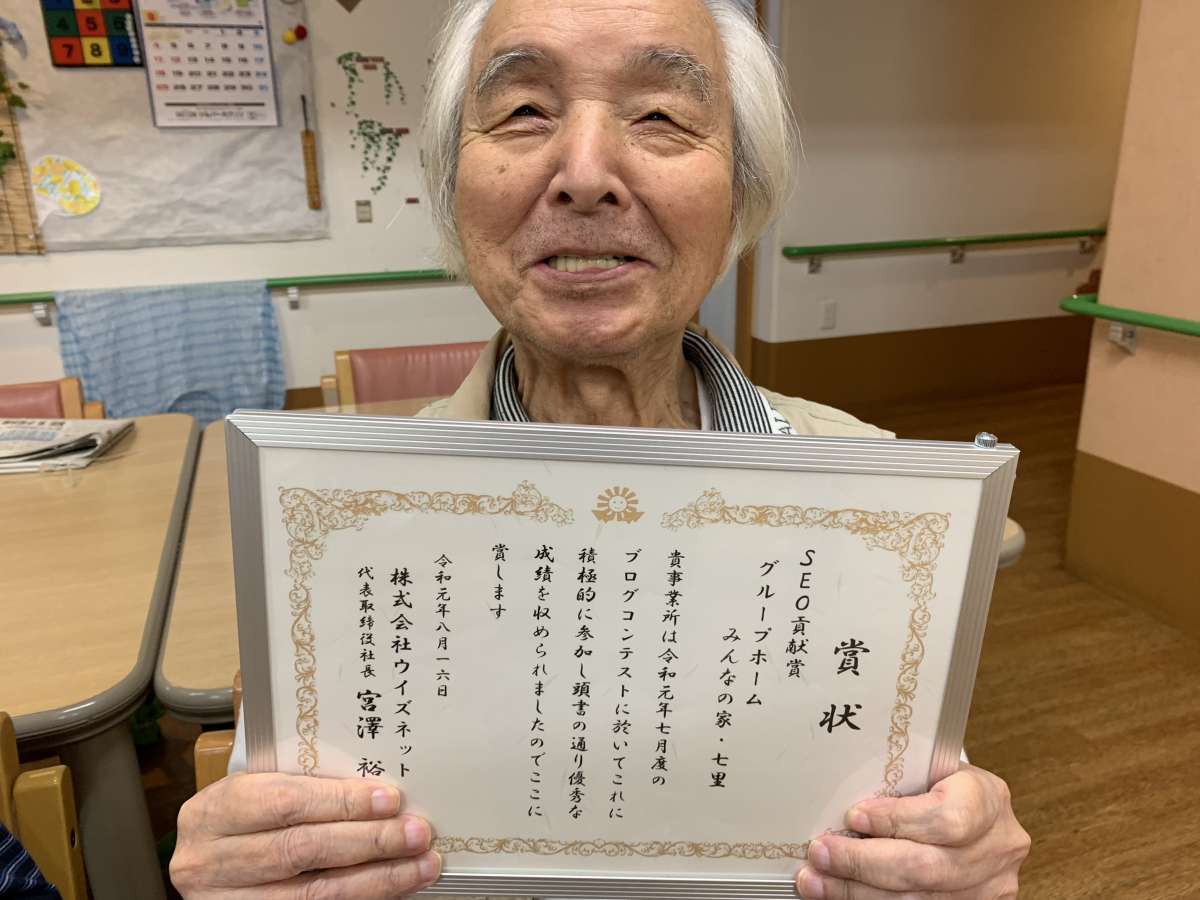 賞状
SEO貢献賞
グループホーム
みんなの家・七里
貴事業所は令和元年七月度の
ブログコンテストに於いてこれに
積極的に参加し頭書の通り優秀な
成績を収められましたのでここに
賞します
令和元年八月一六日
株式会社ウイズネット
代表取締役社長 宮澤 裕